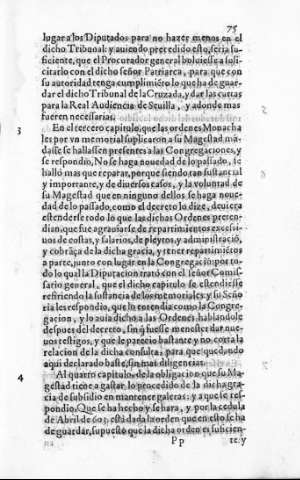 75
lugar a los Diputados para no hazer menos en el
dicho Tribunal: y auiendo precedido esto, seria su-
ficiente, que el Procurador general boluiesse a soli-
citarlo con el dicho señor Patriarca, para que con
su autoridad tenga cumplimiẽto lo que ha de guar-
dar el dicho Tribunal de la Cruzada, y dar las cartas
para la Real Audiencia de Seuilla, y adonde mas
fueren necessarias.
3 En el tercero capitulo, que las ordenes Monacha
les por vn memorial suplicaron a su Magestad mã-
dasse se hallassen presentes a las Congregaciones, y
se respondio, No se haga nouedad de lo passado, se
hallò mas que reparar, porque siendo tan sustancial
y importante, y de diuersos casos, y la voluntad de
su Magestad que en ninguno dellos se haga noue-
dad de lo passado, como el decreto lo dize, deuiera
estenderse todo lo que las dichas Ordenes preten-
dian, que fue agrauiarse de repartimientos excessi-
uos de costas, y salarios, de pleytos, y administraciõ,
y cobrãça de la dicha gracia, y tener repartimiẽtos
a parte, voto con lugar en la Congregaciõ: por to-
do lo qual la Diputacion tratò con el señor Comis-
sario general, que el dicho capitulo se estendiesse
refiriendo la sustancia de los memoriales: y su Seño
ria les respondio, que lo tendia como la Congre-
gacion, y lo auia dicho a las Ordenes hablandole
despues del decreto, sin q̃ fuesse menester dar nue-
uos testigos, y que le parecio bastante y no corta la
relacion de la dicha consulta: para que quedando
aqui declarado baste, sin mas diligencias.
4 Al quarto capitulo, de la obligacion que su Ma-
gestad tiene a gastar lo procedido de la dicha gra-
cia de subsidio en mantener galeras: y a que se res-
pondio, Que se ha hecho y se hara, y por la cedula
de Abril de 603. està dada la orden que en esto se ha
de guardar, supuesto que la dicha orden es suficien-
Pp te, y